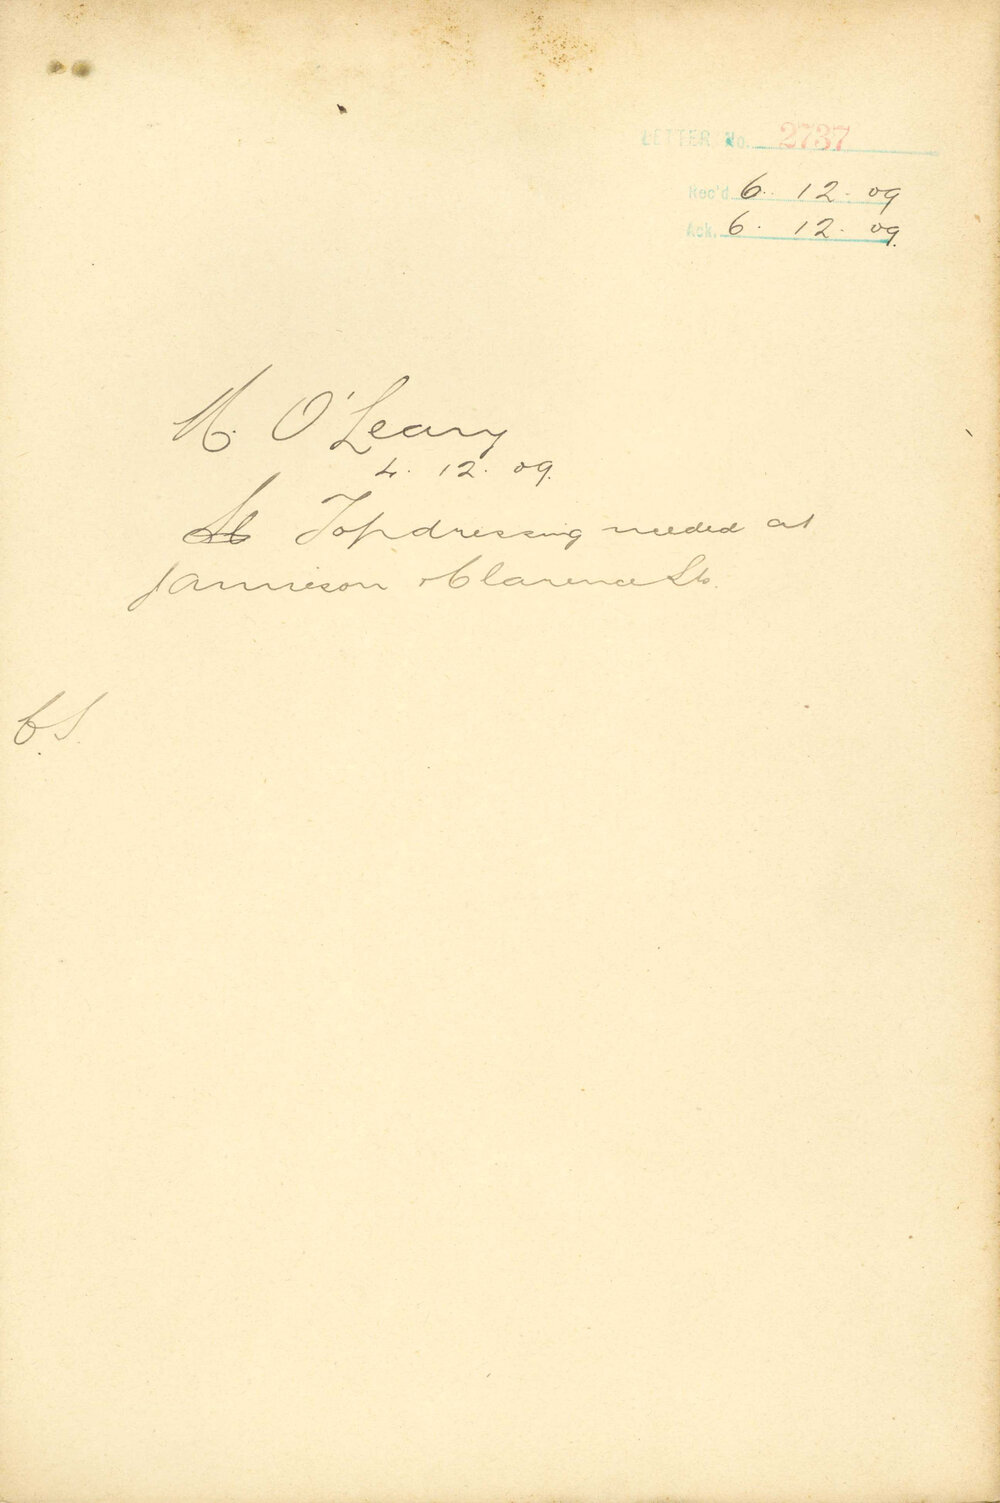 LETTER No. 2737
Rec'd 6. 12. 09
Ack. 6. 12. 09.
M. O'Leary
4. 12. 09.
Topdressing needed at
Jamieson & Clarence Sts.
C.S.